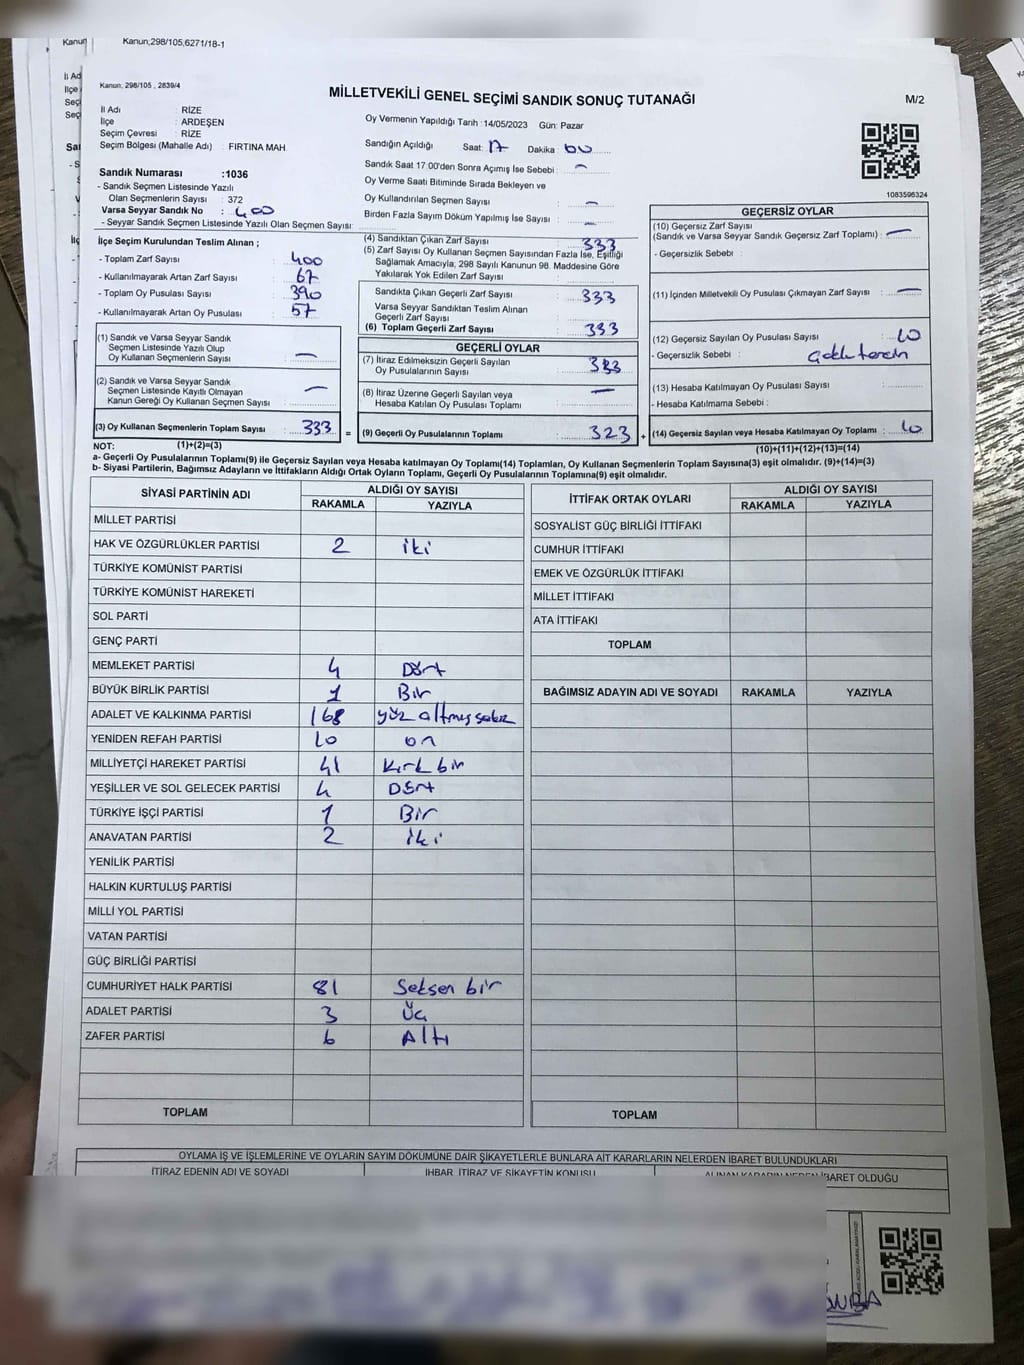 Kanun,298/105,6271/18-1
Kanun, 298/105 , 2839/4
MİLLETVEKİLİ GENEL SEÇİMİ SANDIK SONUÇ TUTANAĞI
M/2
İl Adı : RİZE
İlçe : ARDEŞEN
Seçim Çevresi : RİZE
Seçim Bölgesi (Mahalle Adı) : FIRTINA MAH.
Oy Vermenin Yapıldığı Tarih :14/05/2023 Gün: Pazar
Sandığın Açıldığı Saat: 17 Dakika: 00
Sandık Saat 17:00'den Sonra Açımış İse Sebebi : —
Oy Verme Saati Bitiminde Sırada Bekleyen ve
Oy Kullandırılan Seçmen Sayısı : —
Birden Fazla Sayım Döküm Yapılmış İse Sayısı : —
1083596324
Sandık Numarası :1036
- Sandık Seçmen Listesinde Yazılı
Olan Seçmenlerin Sayısı : 372
Varsa Seyyar Sandık No : 400
- Seyyar Sandık Seçmen Listesinde Yazılı Olan Seçmen Sayısı:
İlçe Seçim Kurulundan Teslim Alınan ;
- Toplam Zarf Sayısı : 400
- Kullanılmayarak Artan Zarf Sayısı : 67
- Toplam Oy Pusulası Sayısı : 390
- Kullanılmayarak Artan Oy Pusulası : 57
(1) Sandık ve Varsa Seyyar Sandık
Seçmen Listesinde Yazılı Olup
Oy Kullanan Seçmenlerin Sayısı : —
(2) Sandık ve Varsa Seyyar Sandık
Seçmen Listesinde Kayıtlı Olmayan
Kanun Gereği Oy Kullanan Seçmen Sayısı : —
(3) Oy Kullanan Seçmenlerin Toplam Sayısı : 333
(4) Sandıktan Çıkan Zarf Sayısı : 333
(5) Zarf Sayısı Oy Kullanan Seçmen Sayısından Fazla İse, Eşitliği
Sağlamak Amacıyla, 298 Sayılı Kanunun 98. Maddesine Göre
Yakılarak Yok Edilen Zarf Sayısı :
Sandıkta Çıkan Geçerli Zarf Sayısı : 333
Varsa Seyyar Sandıktan Teslim Alınan
Geçerli Zarf Sayısı :
(6) Toplam Geçerli Zarf Sayısı : 333
GEÇERLİ OYLAR
(7) İtiraz Edilmeksizin Geçerli Sayılan
Oy Pusulalarının Sayısı : 333
(8) İtiraz Üzerine Geçerli Sayılan veya
Hesaba Katılan Oy Pusulası Toplamı : —
= (9) Geçerli Oy Pusulalarının Toplamı : 323
GEÇERSİZ OYLAR
(10) Geçersiz Zarf Sayısı
(Sandık ve Varsa Seyyar Sandık Geçersiz Zarf Toplamı) : —
- Geçersizlik Sebebi :
(11) İçinden Milletvekili Oy Pusulası Çıkmayan Zarf Sayısı : —
(12) Geçersiz Sayılan Oy Pusulası Sayısı : 10
- Geçersizlik Sebebi :
(13) Hesaba Katılmayan Oy Pusulası Sayısı :
- Hesaba Katılmama Sebebi :
+ (14) Geçersiz Sayılan veya Hesaba Katılmayan Oy Toplamı : 10
NOT: (1)+(2)=(3) (10)+(11)+(12)+(13)=(14)
a- Geçerli Oy Pusulaları Toplamı(9) ile Geçersiz Sayılan veya Hesaba katılmayan Oy Toplamı(14) Toplamları, Oy Kullanan Seçmenlerin Toplam Sayısına(3) eşit olmalıdır. (9)+(14)=(3)
b- Siyasi Partilerin, Bağımsız Adayların ve İttifakların Aldığı Ortak Oyların Toplamı, Geçerli Oy Pusulalarının Toplamına(9) eşit olmalıdır.
SİYASİ PARTİNİN ADI ALDIĞI OY SAYISI
RAKAMLA YAZIYLA
MİLLET PARTİSİ
HAK VE ÖZGÜRLÜKLER PARTİSİ 2 iki
TÜRKİYE KOMÜNİST PARTİSİ
TÜRKİYE KOMÜNİST HAREKETİ
SOL PARTİ
GENÇ PARTİ
MEMLEKET PARTİSİ 4 Dört
BÜYÜK BİRLİK PARTİSİ 1 Bir
ADALET VE KALKINMA PARTİSİ 168 yüz altmış sekiz
YENİDEN REFAH PARTİSİ 10 on
MİLLİYETÇİ HAREKET PARTİSİ 41 Kırk bir
YEŞİLLER VE SOL GELECEK PARTİSİ 4 Dört
TÜRKİYE İŞÇİ PARTİSİ 1 Bir
ANAVATAN PARTİSİ 2 iki
YENİLİK PARTİSİ
HALKIN KURTULUŞ PARTİSİ
MİLLİ YOL PARTİSİ
VATAN PARTİSİ
GÜÇ BİRLİĞİ PARTİSİ
CUMHURİYET HALK PARTİSİ 81 Seksen bir
ADALET PARTİSİ 3 Üç
ZAFER PARTİSİ 6 Altı
TOPLAM
İTTİFAK ORTAK OYLARI ALDIĞI OY SAYISI
RAKAMLA YAZIYLA
SOSYALİST GÜÇ BİRLİĞİ İTTİFAKI
CUMHUR İTTİFAKI
EMEK VE ÖZGÜRLÜK İTTİFAKI
MİLLET İTTİFAKI
ATA İTTİFAKI
TOPLAM
BAĞIMSIZ ADAYIN ADI VE SOYADI RAKAMLA YAZIYLA
TOPLAM
OYLAMA İŞ VE İŞLEMLERİNE VE OYLARIN SAYIM DÖKÜMÜNE DAİR ŞİKAYETLERLE BUNLARA AİT KARARLARIN NELERDEN İBARET BULUNDUKLARI
İTİRAZ EDENİN ADI VE SOYADI İHBAR, İTİRAZ VE ŞİKAYETİN KONUSU ALINAN KARARIN NEDEN İBARET OLDUĞU